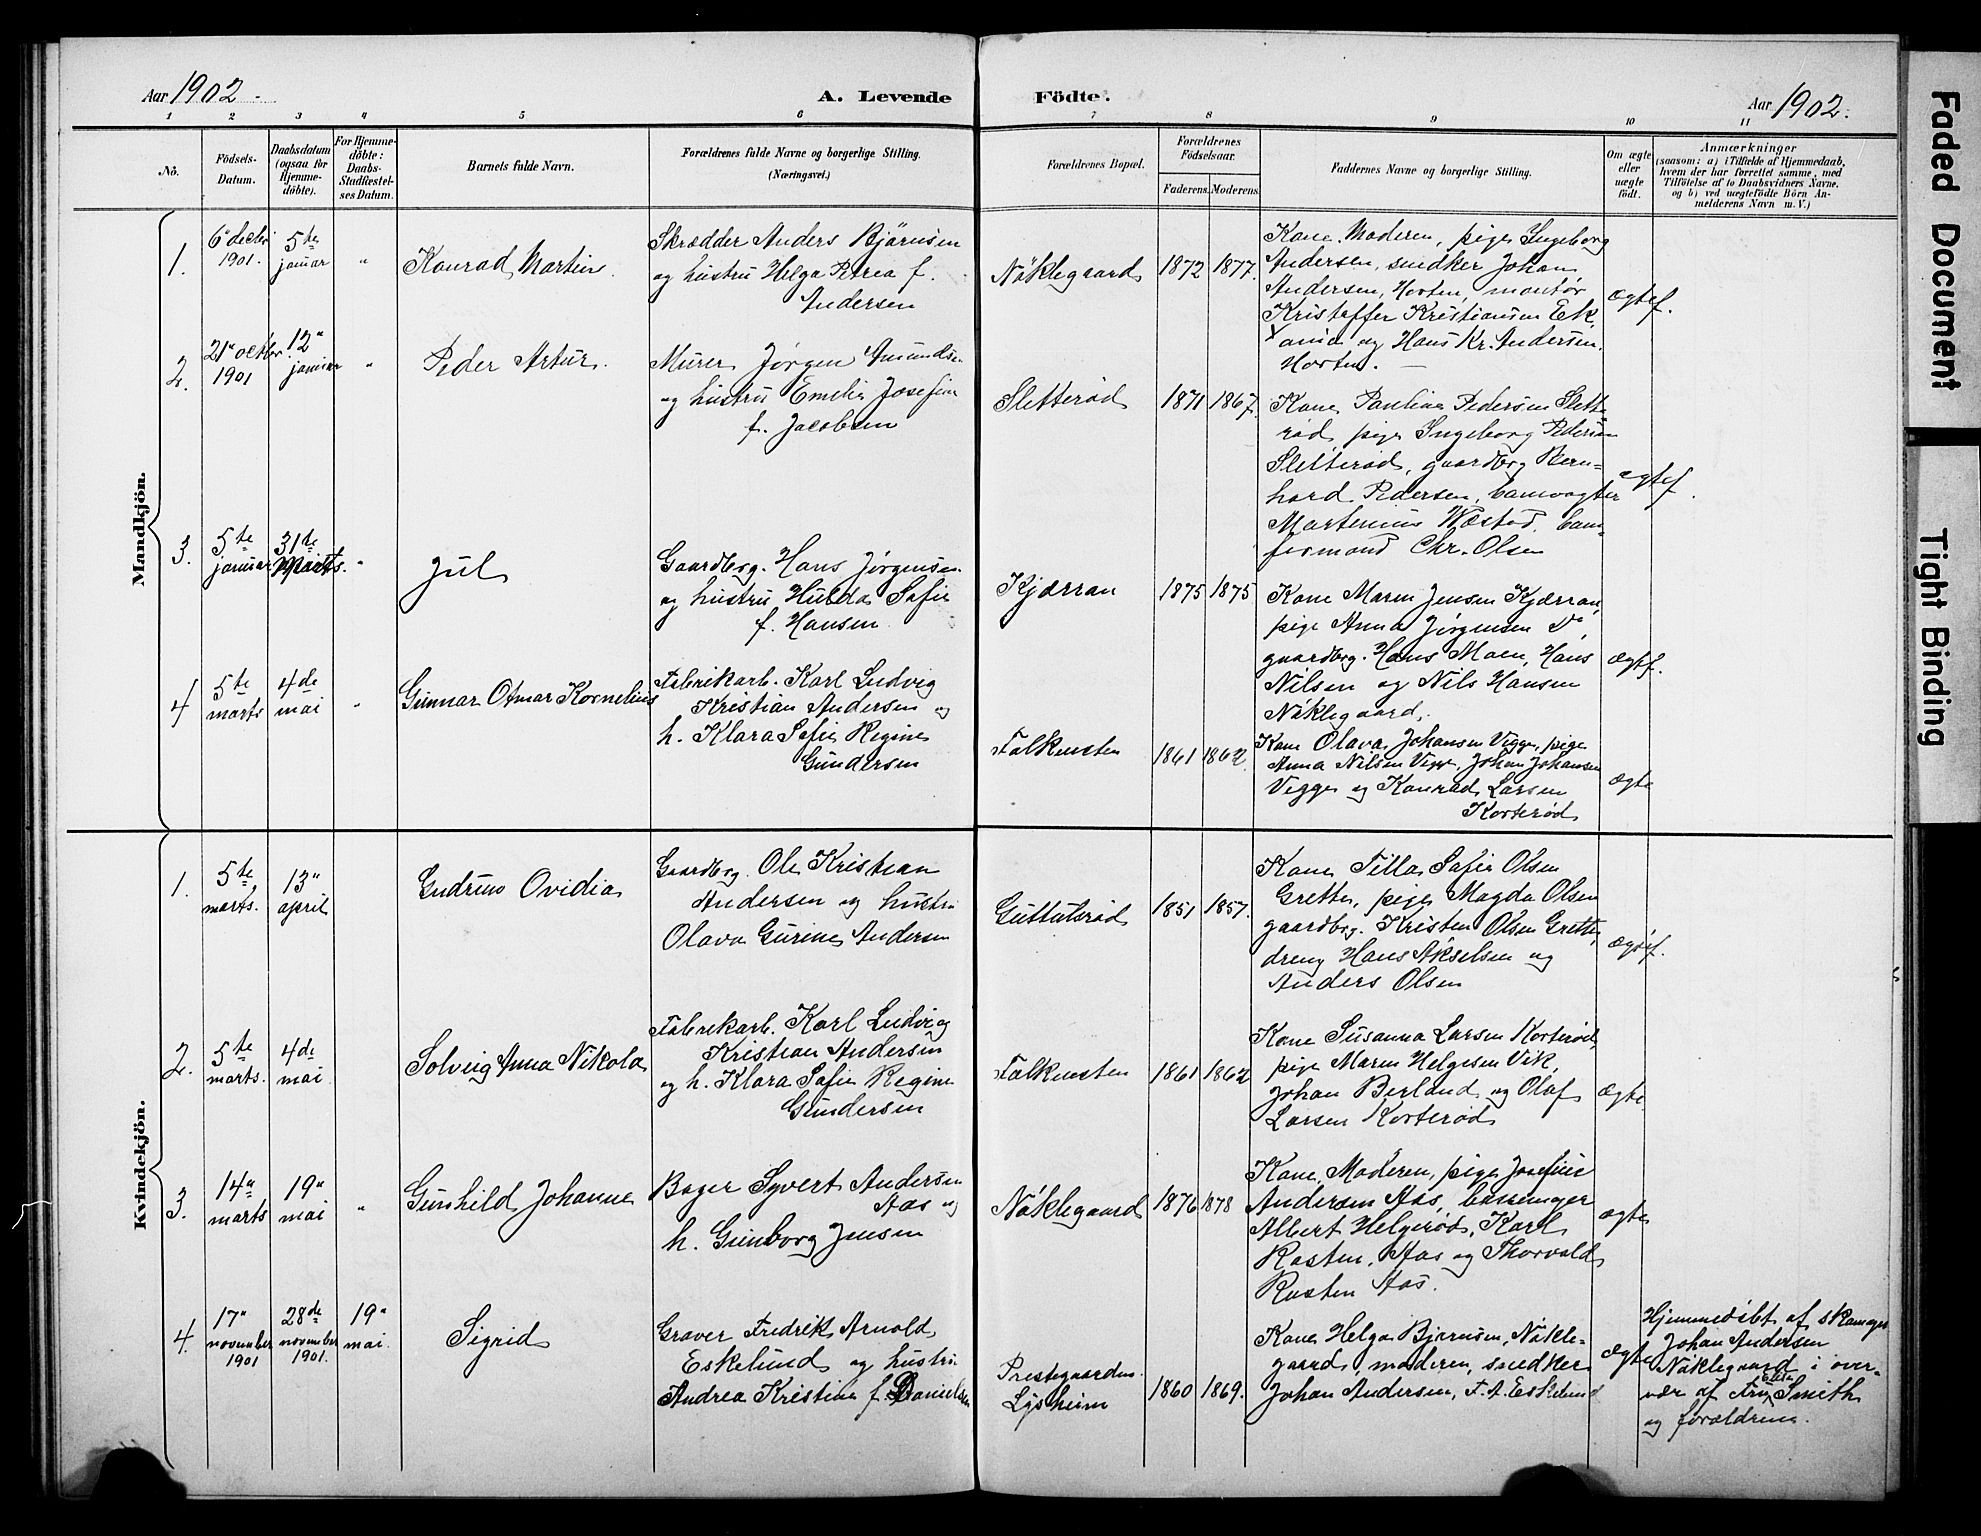 Aar 1902.
A. Levende Födte.
Aar 1902.
1 2 3 4 5 6 7 8 9 10 11
No.
Födsels-
Datum.
Daabsdatum
(ogsaa for
Hjemme-
döbte).
For Hjemme-
döbte:
Daabs-
Stadfæstel-
ses Datum.
Barnets fulde Navn.
Forældrenes fulde Navne og borgerlige Stilling.
(Næringsvei.)
Forældrenes Bopæl.
Forældrenes
Födselsaar.
Faderens. Moderens.
Faddernes Navne og borgerlige Stilling.
Om ægte
eller
uægte
födt.
Anmærkninger
(saasom: a) i Tilfælde af Hjemmedaab,
hvem der har forrettet samme, med
Tilföielse af to Daabsvidners Navne,
og b) ved uægtefödte Börn An-
melderens Navn m. V.)
Mandkjön.
1.
6" decbr
1901.
5te
januar
"
Konrad Martin.
Skrædder Anders Bjørnsen
og hustru Helga Petrea f.
Andersen
Nøklegaard
1872 1877.
Kone Moderen, pige Ingeborg
Andersen, snedker Johan
Andersen, Horten, montør
Kristoffer Kristiansen Ek,
og Hans Kr. Andersen,
Horten.
ægtef.
2.
21" octbr.
1901
12"
januar
"
Peder Artur.
Murer Jørgen Amundsen
og hustru Emelie Josefine
f. Jacobsen
Sletterød
1871 1867.
Kone Pauline Pedersen Slette
rød, pige Ingeborg Pedersen
Sletterød, gaardbrg Bern=
hard Pedersen, banevogter
Martinius Wæstad,
Chr. Olsen
ægtef.
3.
5te
januar
31de
Marts.
"
Jul
Gaardbrg. Hans Jørgensen
og hustru Hulda Sofie
f. Hansen
Kjærran
1875 1875
Kone Maren Jensen Kjærran,
pige Anna Jørgensen do,
gaardbrg. Hans Moen, Hans
Nilsen og Nils Hansen
Nøklegaard.
ægtf.
4
5te
marts
4de
mai
"
Gunnar Otmar Kornelius
Fabrikarb. Karl Ludvig
Kristian Andersen og
h. Klara Sofie Regine
Gundersen
Falkensten
1861 1862.
Kone Olava Johansen Vigge, pige
Anna Nilsen Vigge, Johan Johansen
Vigge og Konrad Larsen
Korterød
ægte
Kvindekjön.
1.
5te
marts.
13"
april
Gudrun Ovidia
Gaardbrg. Ole Kristian
Andersen og hustru
Olava Gurine Andersen
Guttulsrød
1851 1857.
Kone Tilla Sofie Olsen
Grette, pige Magda Olsen
gaardbrg. Kristen Olsen Grette,
dreng Hans Akselsen og
Anders Olsen
ægtef.
2.
5te
marts.
4de
mai
Solveig Anna Nikola
Fabrikarb. Karl Ludvig
Kristian Andersen
og h. Klara Sofie Regine
Gundersen
Falkensten
1861 1862
Kone Susanna Larsen Korterød,
pige Maren Helgesen Vik,
Johan Berland og Olaf
Larsen Korterød
ægte
3.
14"
marts
19"
mai
"
Gunhild Johanne
Bager Syvert Andersen
Aas og
h. Gunborg Jensen
Nøklegaard
1876 1878
Kone Moderen, pige Josefine
Andersen Aas,
Albert Helgerød, Karl
Rasten, Aas og Thorvald
Rasten Aas.
ægte
4.
17"
november
1901
28de
november
1901.
19"
mai.
Sigrid
Graver Fredrik Arnold
Eskelund og hustru
Andrea Kristine f. Danielsen
Prestegaarden
Lysheim
1860 1869.
Kone Helga Bjørnsen, Nøkle-
gaard, moderen, snedker
Johan Andersen, F. A. Eskelund
ægte
Hjemmedøbt af skomager
Johan Andersen
Nøklegaard i over-
vær af Fru Smith
og forældrene.
Faded Document
Tight Binding